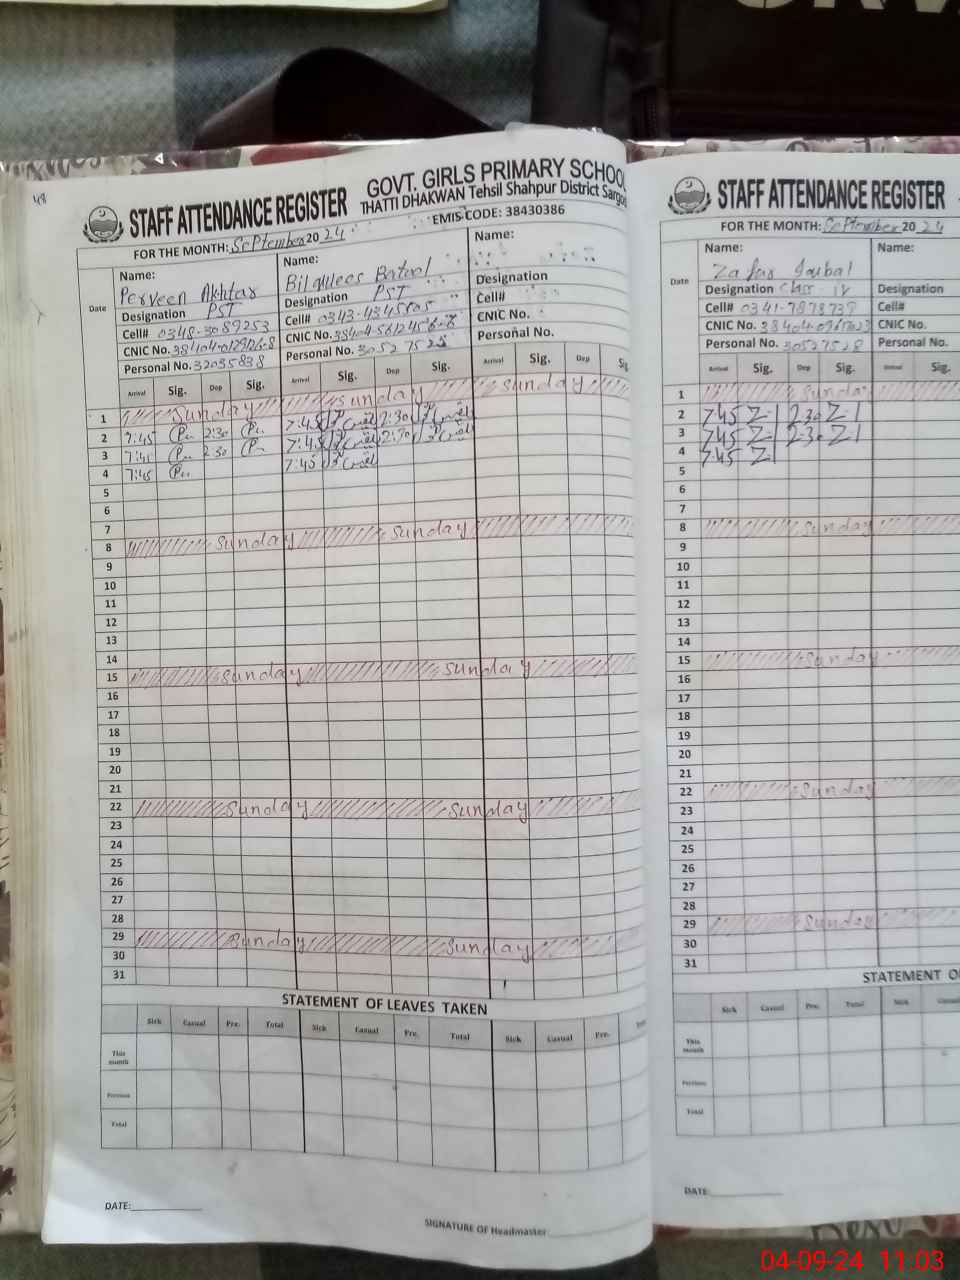 48
STAFF ATTENDANCE REGISTER
GOVT. GIRLS PRIMARY SCHOOL
THATTI DHAKWAN Tehsil Shahpur District
EMIS CODE: 38430386
FOR THE MONTH: September 2024
Date
Name: Perveen Akhtar
Designation PST
Cell# 0348-3089253
CNIC No.
Personal No. 32035838
Name: Bilquees Batool
Designation PST
Cell# 0343-4345805
CNIC No.
Personal No. 30527525
Name:
Designation
Cell#
CNIC No.
Personal No.
Arrival Sig. Dep Sig. Arrival Sig. Dep Sig. Arrival Sig. Dep
1 Sunday Sunday Sunday
2 7:45 2:30 7:45 2:30
3 7:45 2:30 7:45 2:30
4 7:45 7:45
5
6
7
8 Sunday Sunday
9
10
11
12
13
14
15 Sunday Sunday
16
17
18
19
20
21
22 Sunday Sunday
23
24
25
26
27
28
29 Sunday Sunday
30
31
STATEMENT OF LEAVES TAKEN
Sick Casual Pre. Total Sick Casual Pre. Total Sick Casual Pre.
This month
Previous
Total
DATE:
SIGNATURE OF Headmaster
STAFF ATTENDANCE REGISTER
FOR THE MONTH: September 2024
Date
Name: Zafar Iqbal
Designation Class IV
Cell# 0341-7878739
CNIC No.
Personal No. 30527528
Name:
Designation
Cell#
CNIC No.
Personal No.
Arrival Sig. Dep Sig. Arrival Sig.
1 Sunday
2 7:45 2:30
3 7:45 2:30
4 7:45
5
6
7
8 Sunday
9
10
11
12
13
14
15 Sunday
16
17
18
19
20
21
22 Sunday
23
24
25
26
27
28
29 Sunday
30
31
STATEMENT
Sick Casual Pre. Total Sick Casual
This month
Previous
Total
DATE:
04-09-24 11:03